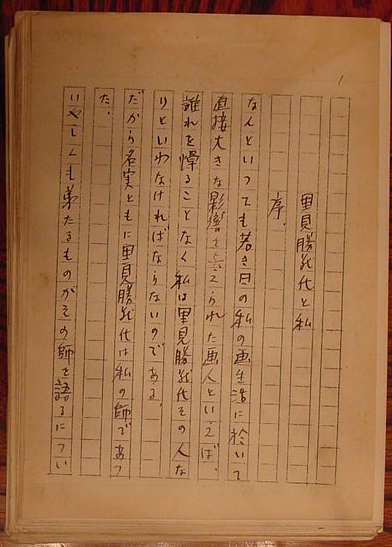 1
里見勝蔵氏と私
序、
なんといっても若き日の私の画生活に於いて
直接大きな影響を与えられた画人といえば、
誰れを憚ることなく私は里見勝蔵氏その人な
りといわなければならないのである。
だから名実ともに里見勝蔵氏は私の師であっ
た。
いやしくも弟たるものがその師を語るについ